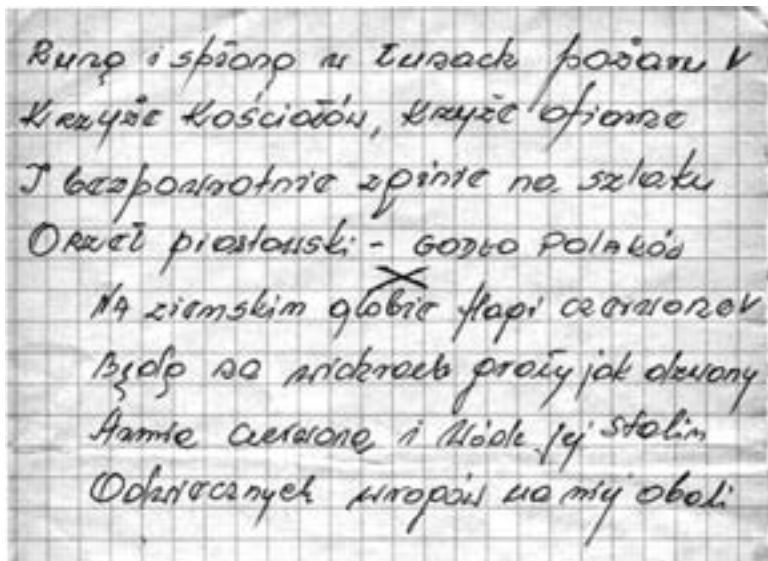 Runą i spłoną w łunach pożaru V
Krzyże Kościołów, krzyże ofiarne
I bezpowrotnie zginie na szlaku
Orzeł piastowski - GODŁO POLAKÓW
X
NA ziemskim globie flagi czerwone V
Będą na wichrach grały jak dzwony
Armia czerwona i Wódz jej Stalin
Odwiecznych wrogów na niej obali